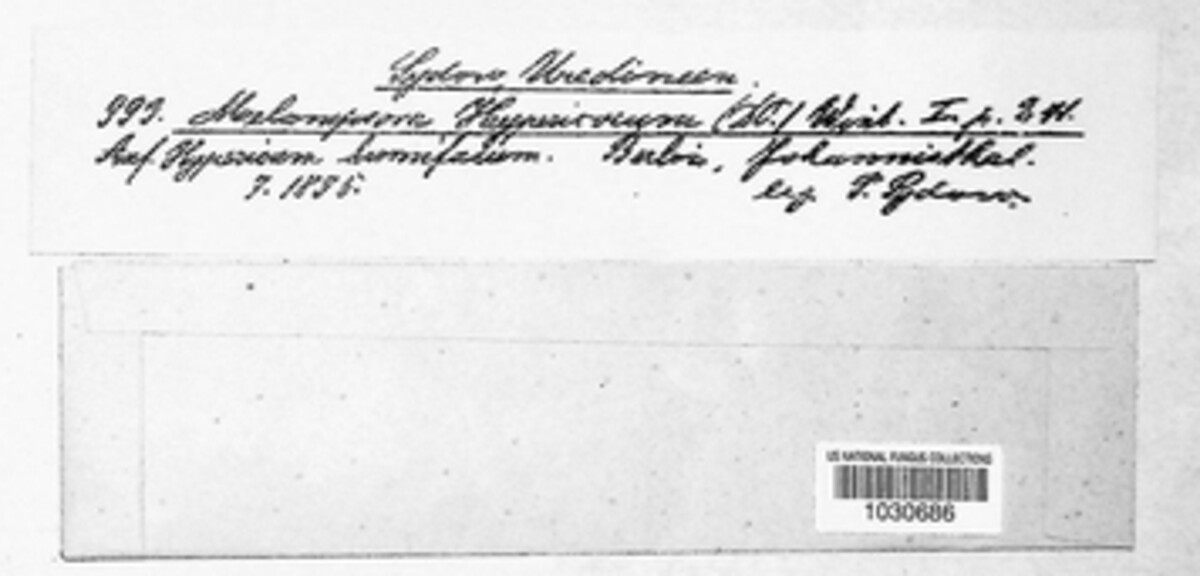 Sydow, Uredineen.
993. Melampsora Hypericorum (DC.) Wint. I. p. 241.
Auf Hypericum humifusum. Berlin, Johannisthal.
7. 1895. leg P. Sydow.
US NATIONAL FUNGUS COLLECTIONS
1030686